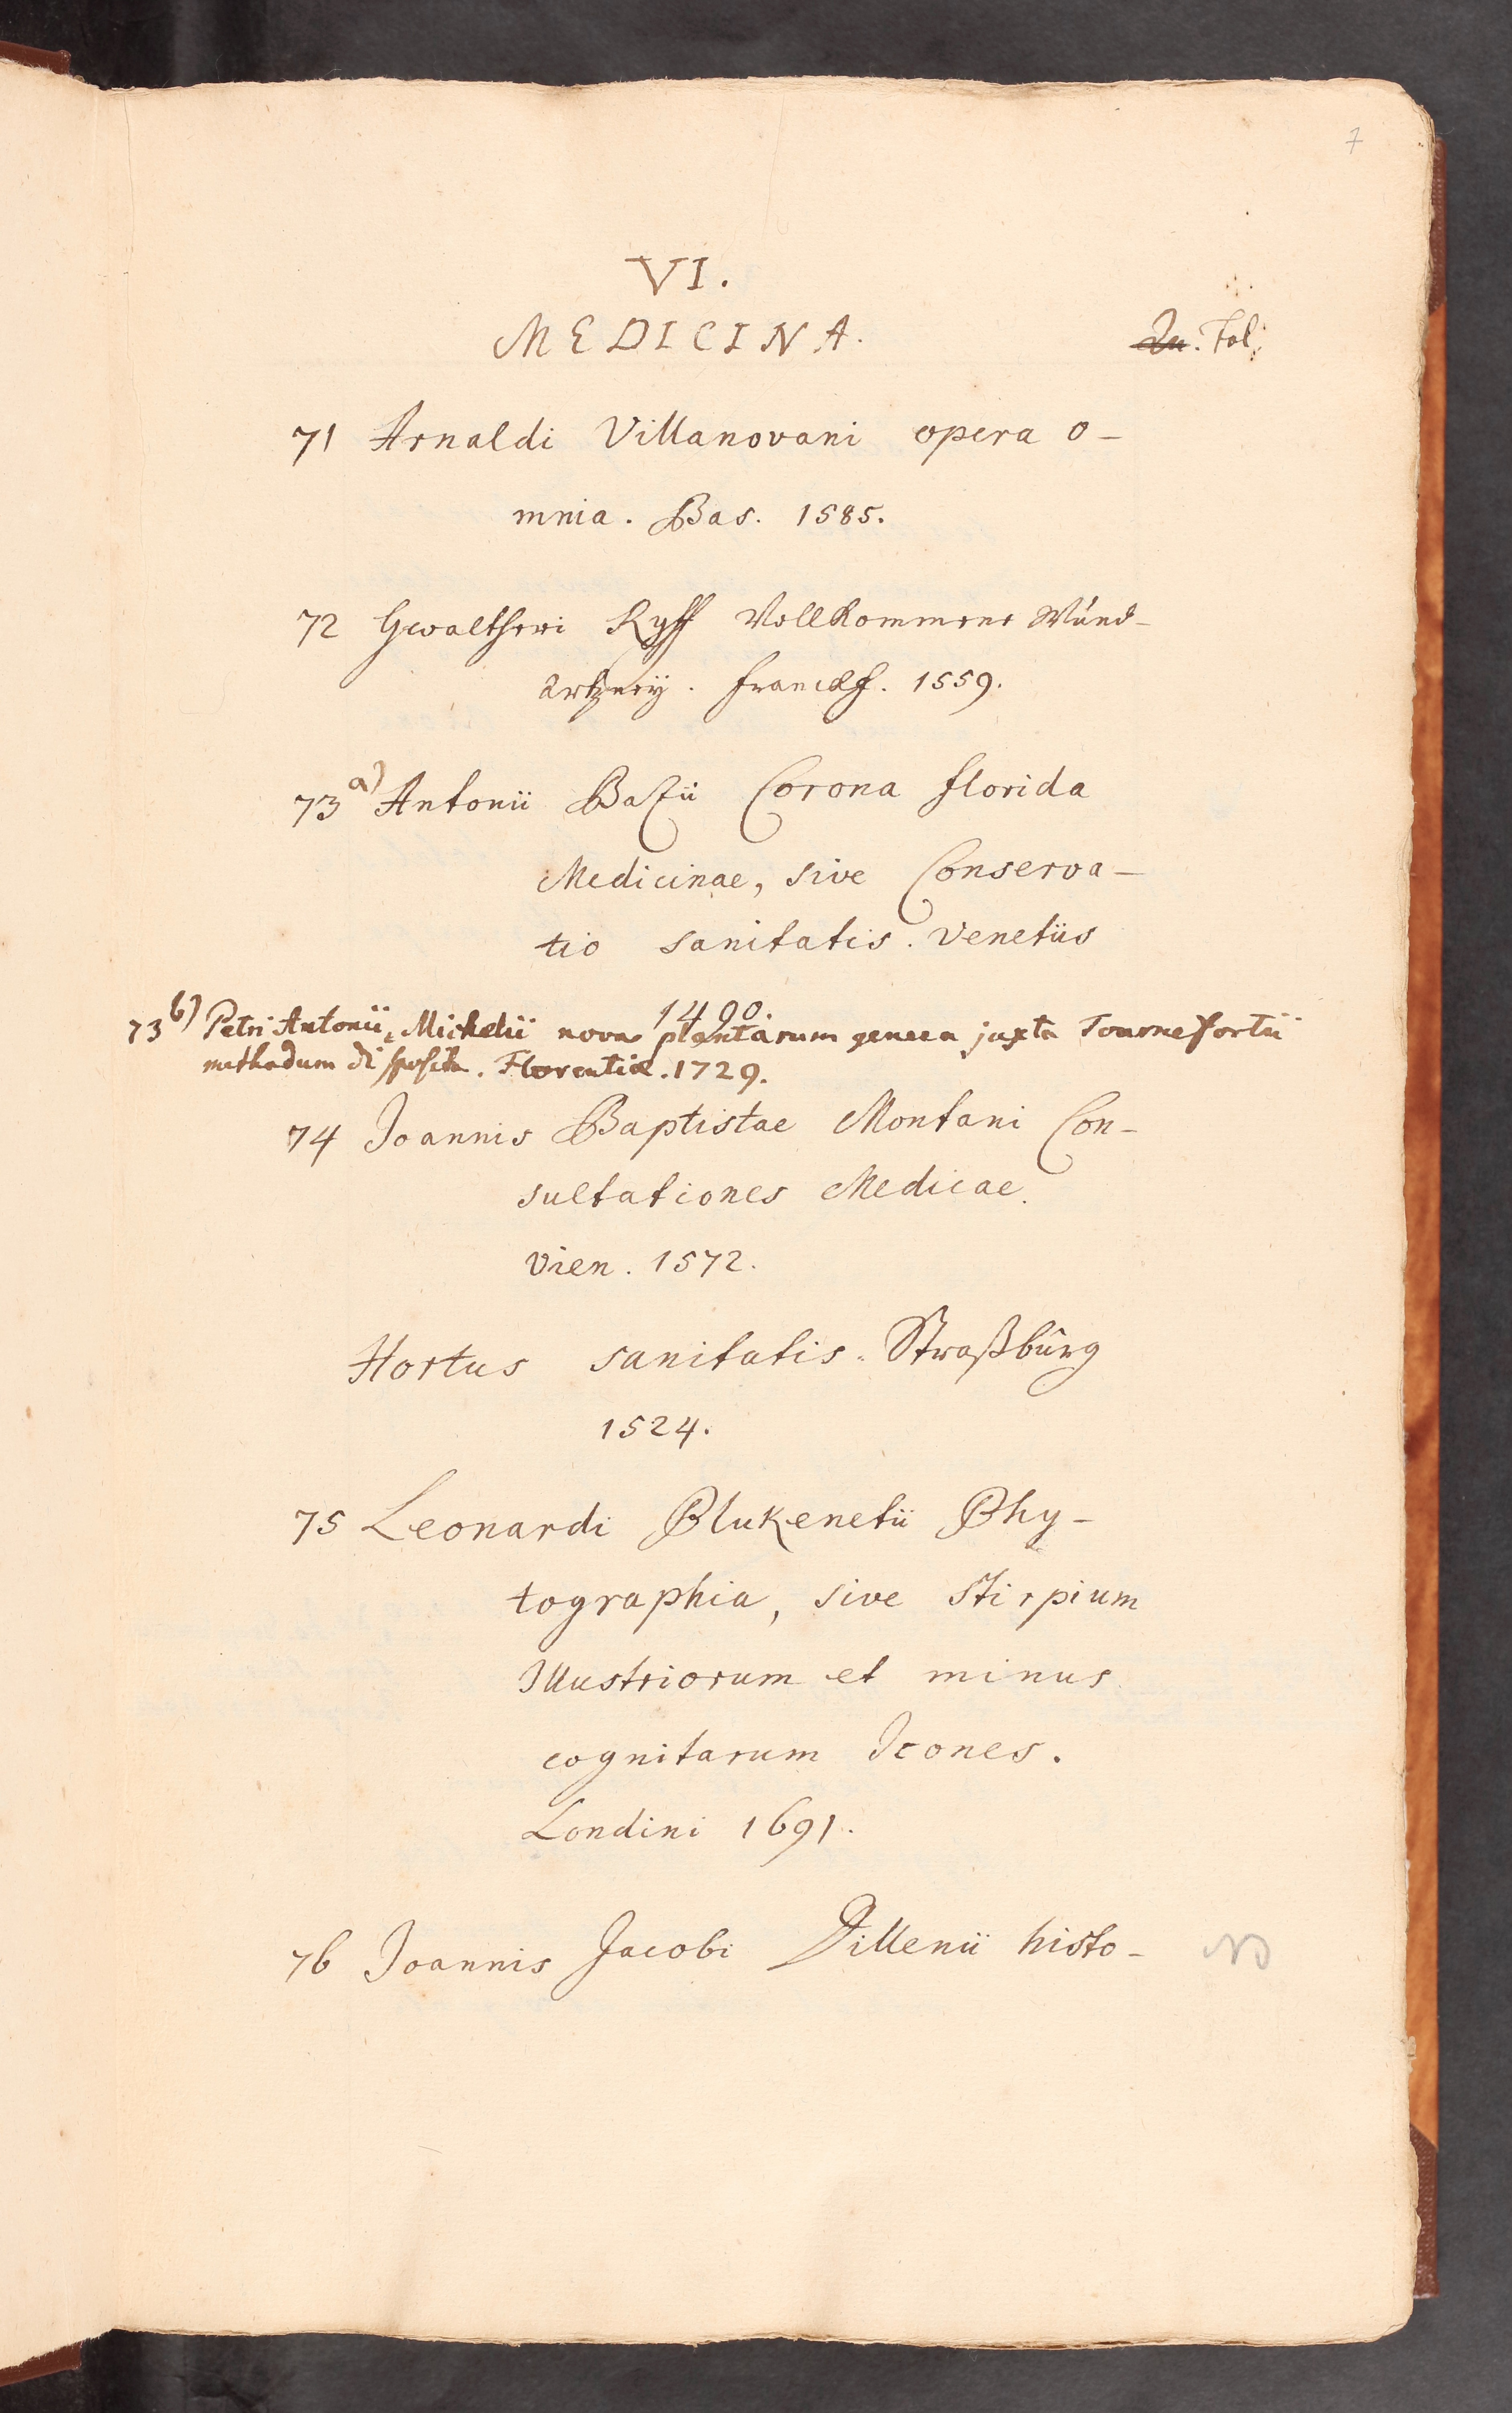 7
VI.
MEDICINA.
In. Fol.
71 Arnaldi Villanovani opera o-
mnia. Bas. 1585.
72 Gwaltheri Ryff Vollkommene Wund-
artzneÿ. Franckf. 1559.
73 a) Antonii Gazii Corona florida
Medicinae, sive Conserva-
tio sanitatis. Venetiis
1490.
73 b) Petri Antonii Michelii nova plantarum genera juxta Tournefortii
methodum disposita. Florentiæ. 1729.
74 Joannis Baptistae Montani Con-
sultationes Medicae.
Vien. 1572.
Hortus sanitatis. Straßburg
1524.
75 Leonardi Plukenetii Phy-
tographia, sive stirpium
Illustriorum et minus
cognitarum Icones.
Londini 1691.
76 Joannis Jacobi Dillenii histo-